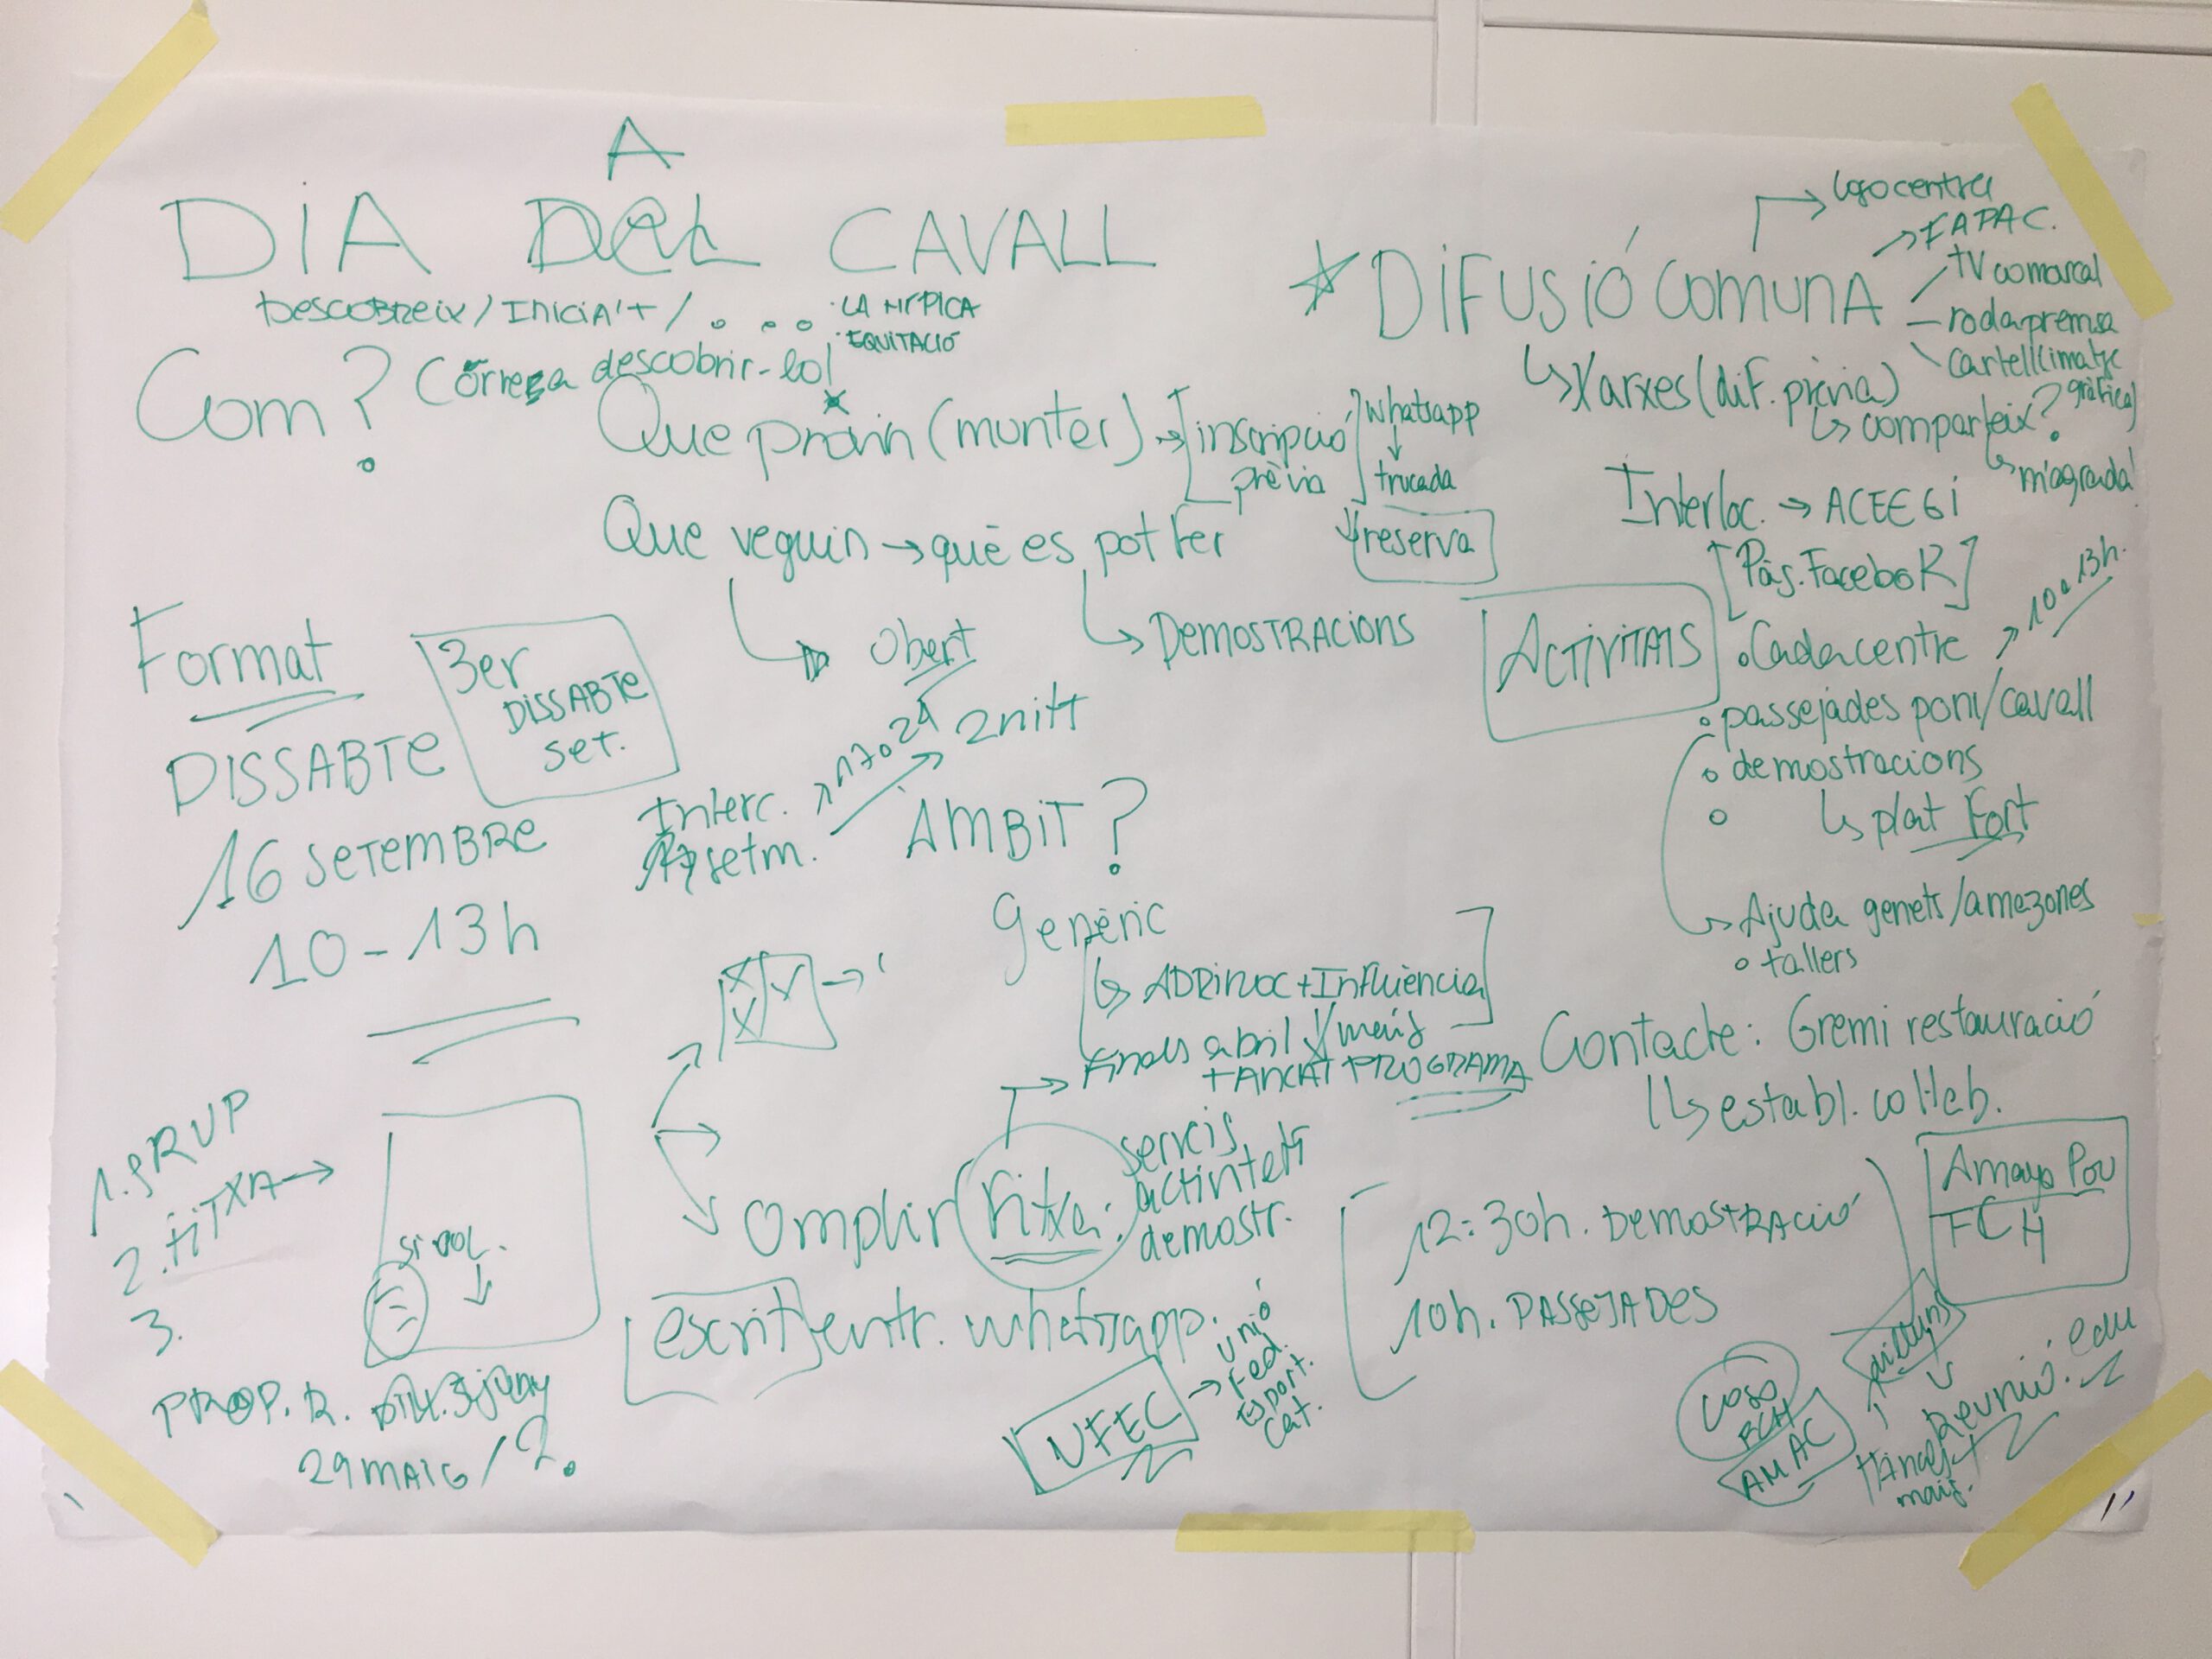 DIA DEL CAVALL
A
DESCOBREIX / INICIA'T / . . .
· LA HÍPICA
· EQUITACIÓ
Com?
Corre a descobrir-lo!
Que provin (munter) → inscripció prèvia
whatsapp
↓
trucada
reserva
Que veguin → què es pot fer
Obert
DEMOSTRACIONS
Format
3er
DISSABTE
SET.
DISSABTE
16 SETEMBRE
10-13h
Interc.
setm.
17 o 24
AMBIT?
Genèric
+ Influència
finals abril / maig
+ TANCAT PROGRAMA
1. GRUP
2. FITXA →
3.
SI VOL.
PROP. R.
29 MAIG / ?
Omplir fitxa:
serveis
activitats
demostr.
escrit entr. whatsapp.
UFEC →
Unió
Fed.
Esport.
Cat.
* DIFUSIÓ COMUNA
logo centre
FAPAC.
TV comarcal
roda premsa
Cartell (imatge
gràfica)
Xarxes (dif. prèvia)
comparteix?
m'agrada!
Interloc. → ACEEGi
[Pàg. Facebook]
ACTIVITATS
· Cada centre
10 a 13h.
passejades poni/cavall
demostracions
plat Fort
Ajuda genets/amazones
tallers
Contacte: Gremi restauració
establ. col·lab.
12:30h. DEMOSTRACIÓ
10h. PASSEJADES
Amaya Pou
FCH
dilluns
Reunió.
FCH
AMAC